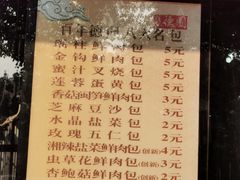 百年德园八大名包
鲜肉包 5元
金钩鲜肉包 5元
蜜汁叉烧包 5元
莲蓉蛋黄包 5元
香菇肉包 3元
芝麻豆沙包 3元
水晶盐菜包 2元
玫瑰五仁包 2元
湘辣盐菜鲜肉包(创新) 4元
虫草花鲜肉包(创新) 3元
杏鲍菇鲜肉包(创新) 2元